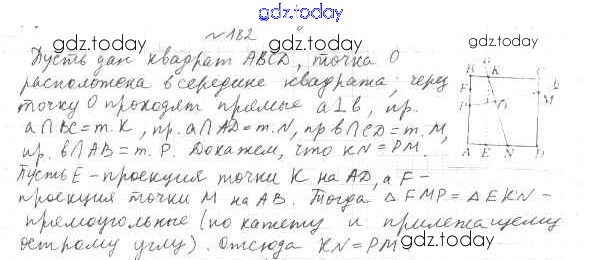 gdz.today
№ 182
gdz.today
gdz.today
Пусть дан квадрат ABCD, точка O
расположена в середине квадрата; через
точку O проходят прямые a⊥b, пр.
a∩BC=т.K, пр.a∩AD=т.N, пр b∩CD=т.M,
пр. b∩AB=т.P. Докажем, что KN=PM.
Пусть E-проекция точки K на AD, а F-
проекция точки M на AB. Тогда △FMP=△EKN-
прямоугольные (по катету и прилежащему
острому углу). Отсюда KN=PM
B K C
F M b
P O
A E N D
gdz.today
gdz.today
gdz.today
gdz.today